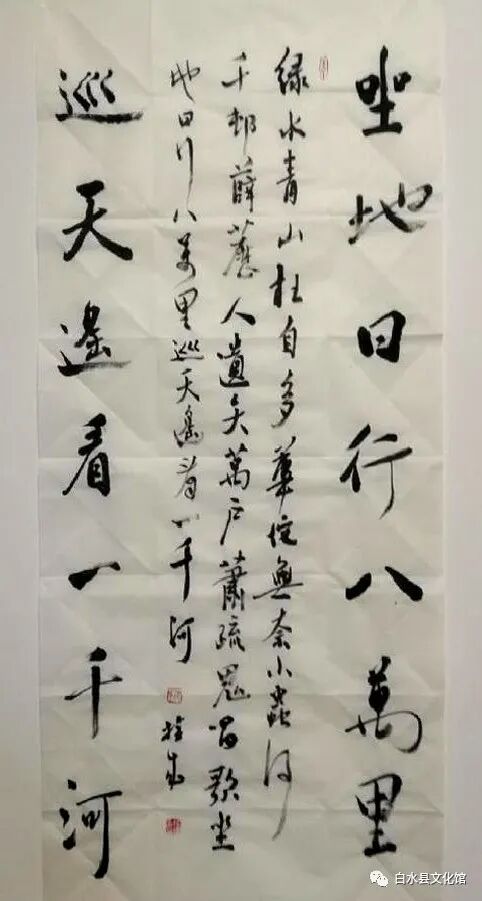 坐地日行八萬里
緑水青山枉自多華佗無奈小蟲何
千邨薜荔人遺矢萬户蕭疏鬼唱歌坐
地日行八萬里巡天遥看一千河
巡天遥看一千河
白水县文化馆